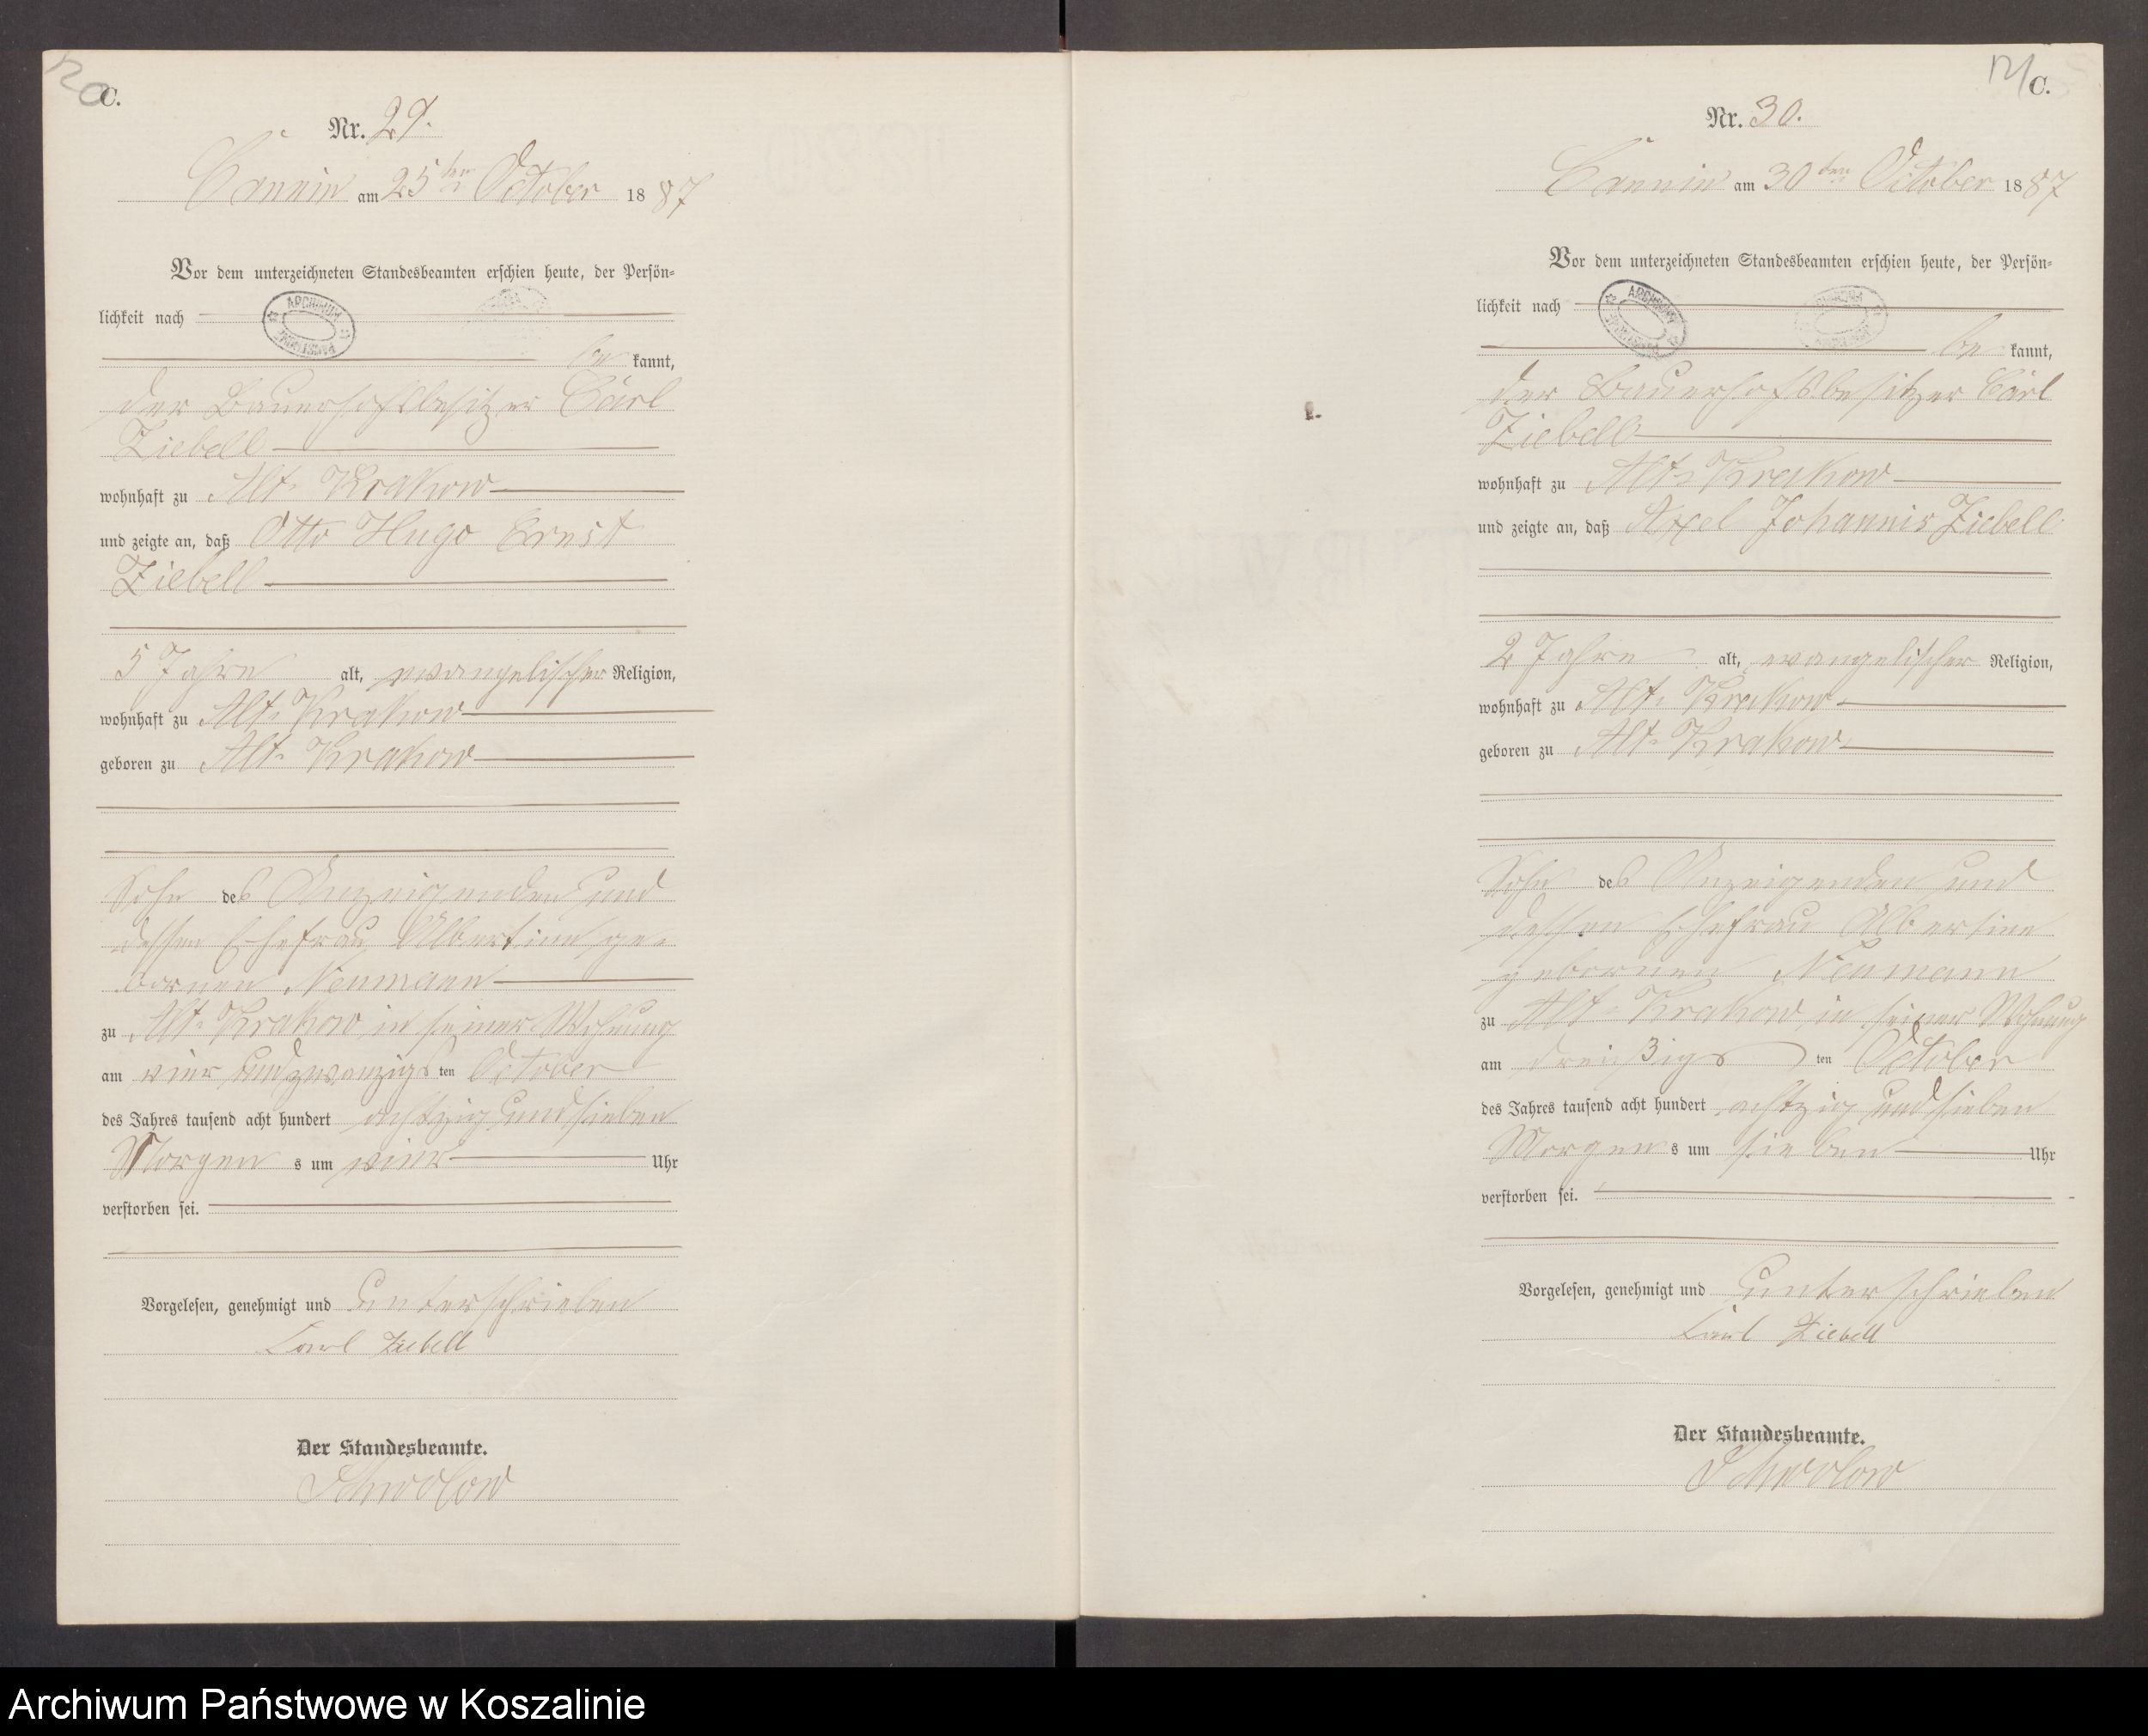 C.
Nr. 29.
Cannin am 25ten October 1887
Vor dem unterzeichneten Standesbeamten erschien heute, der Persön-
lichkeit nach
ARCHIWUM
be kannt,
der Bauerhofsbesitzer Carl
Ziebell
wohnhaft zu Alt-Krakow
und zeigte an, daß Otto Hugo Ernst
Ziebell
5 Jahre alt, evangelischer Religion,
wohnhaft zu Alt-Krakow
geboren zu Alt-Krakow
Sohn des Anzeigenden und
dessen Ehefrau Albertine ge-
bornen Neumann
zu Alt-Krakow in seiner Wohnung
am vier und zwanzigsten October
des Jahres tausend acht hundert achtzig und sieben
Morgens um vier Uhr
verstorben sei.
Vorgelesen, genehmigt und unterschrieben
Carl Ziebell
Der Standesbeamte.
C.
Nr. 30.
Cannin am 30ten October 1887
Vor dem unterzeichneten Standesbeamten erschien heute, der Persön-
lichkeit nach
be kannt,
der Bauerhofsbesitzer Carl
Ziebell
wohnhaft zu Alt-Krakow
und zeigte an, daß Axel Johannis Ziebell
2 Jahre alt, evangelischer Religion,
wohnhaft zu Alt-Krakow
geboren zu Alt-Krakow
Sohn des Anzeigenden und
dessen Ehefrau Albertine
gebornen Neumann
zu Alt-Krakow in seiner Wohnung
am dreißigsten October
des Jahres tausend acht hundert achtzig und sieben
Morgens um sieben Uhr
verstorben sei.
Vorgelesen, genehmigt und unterschrieben
Carl Ziebell
Der Standesbeamte.
Archiwum Państwowe w Koszalinie